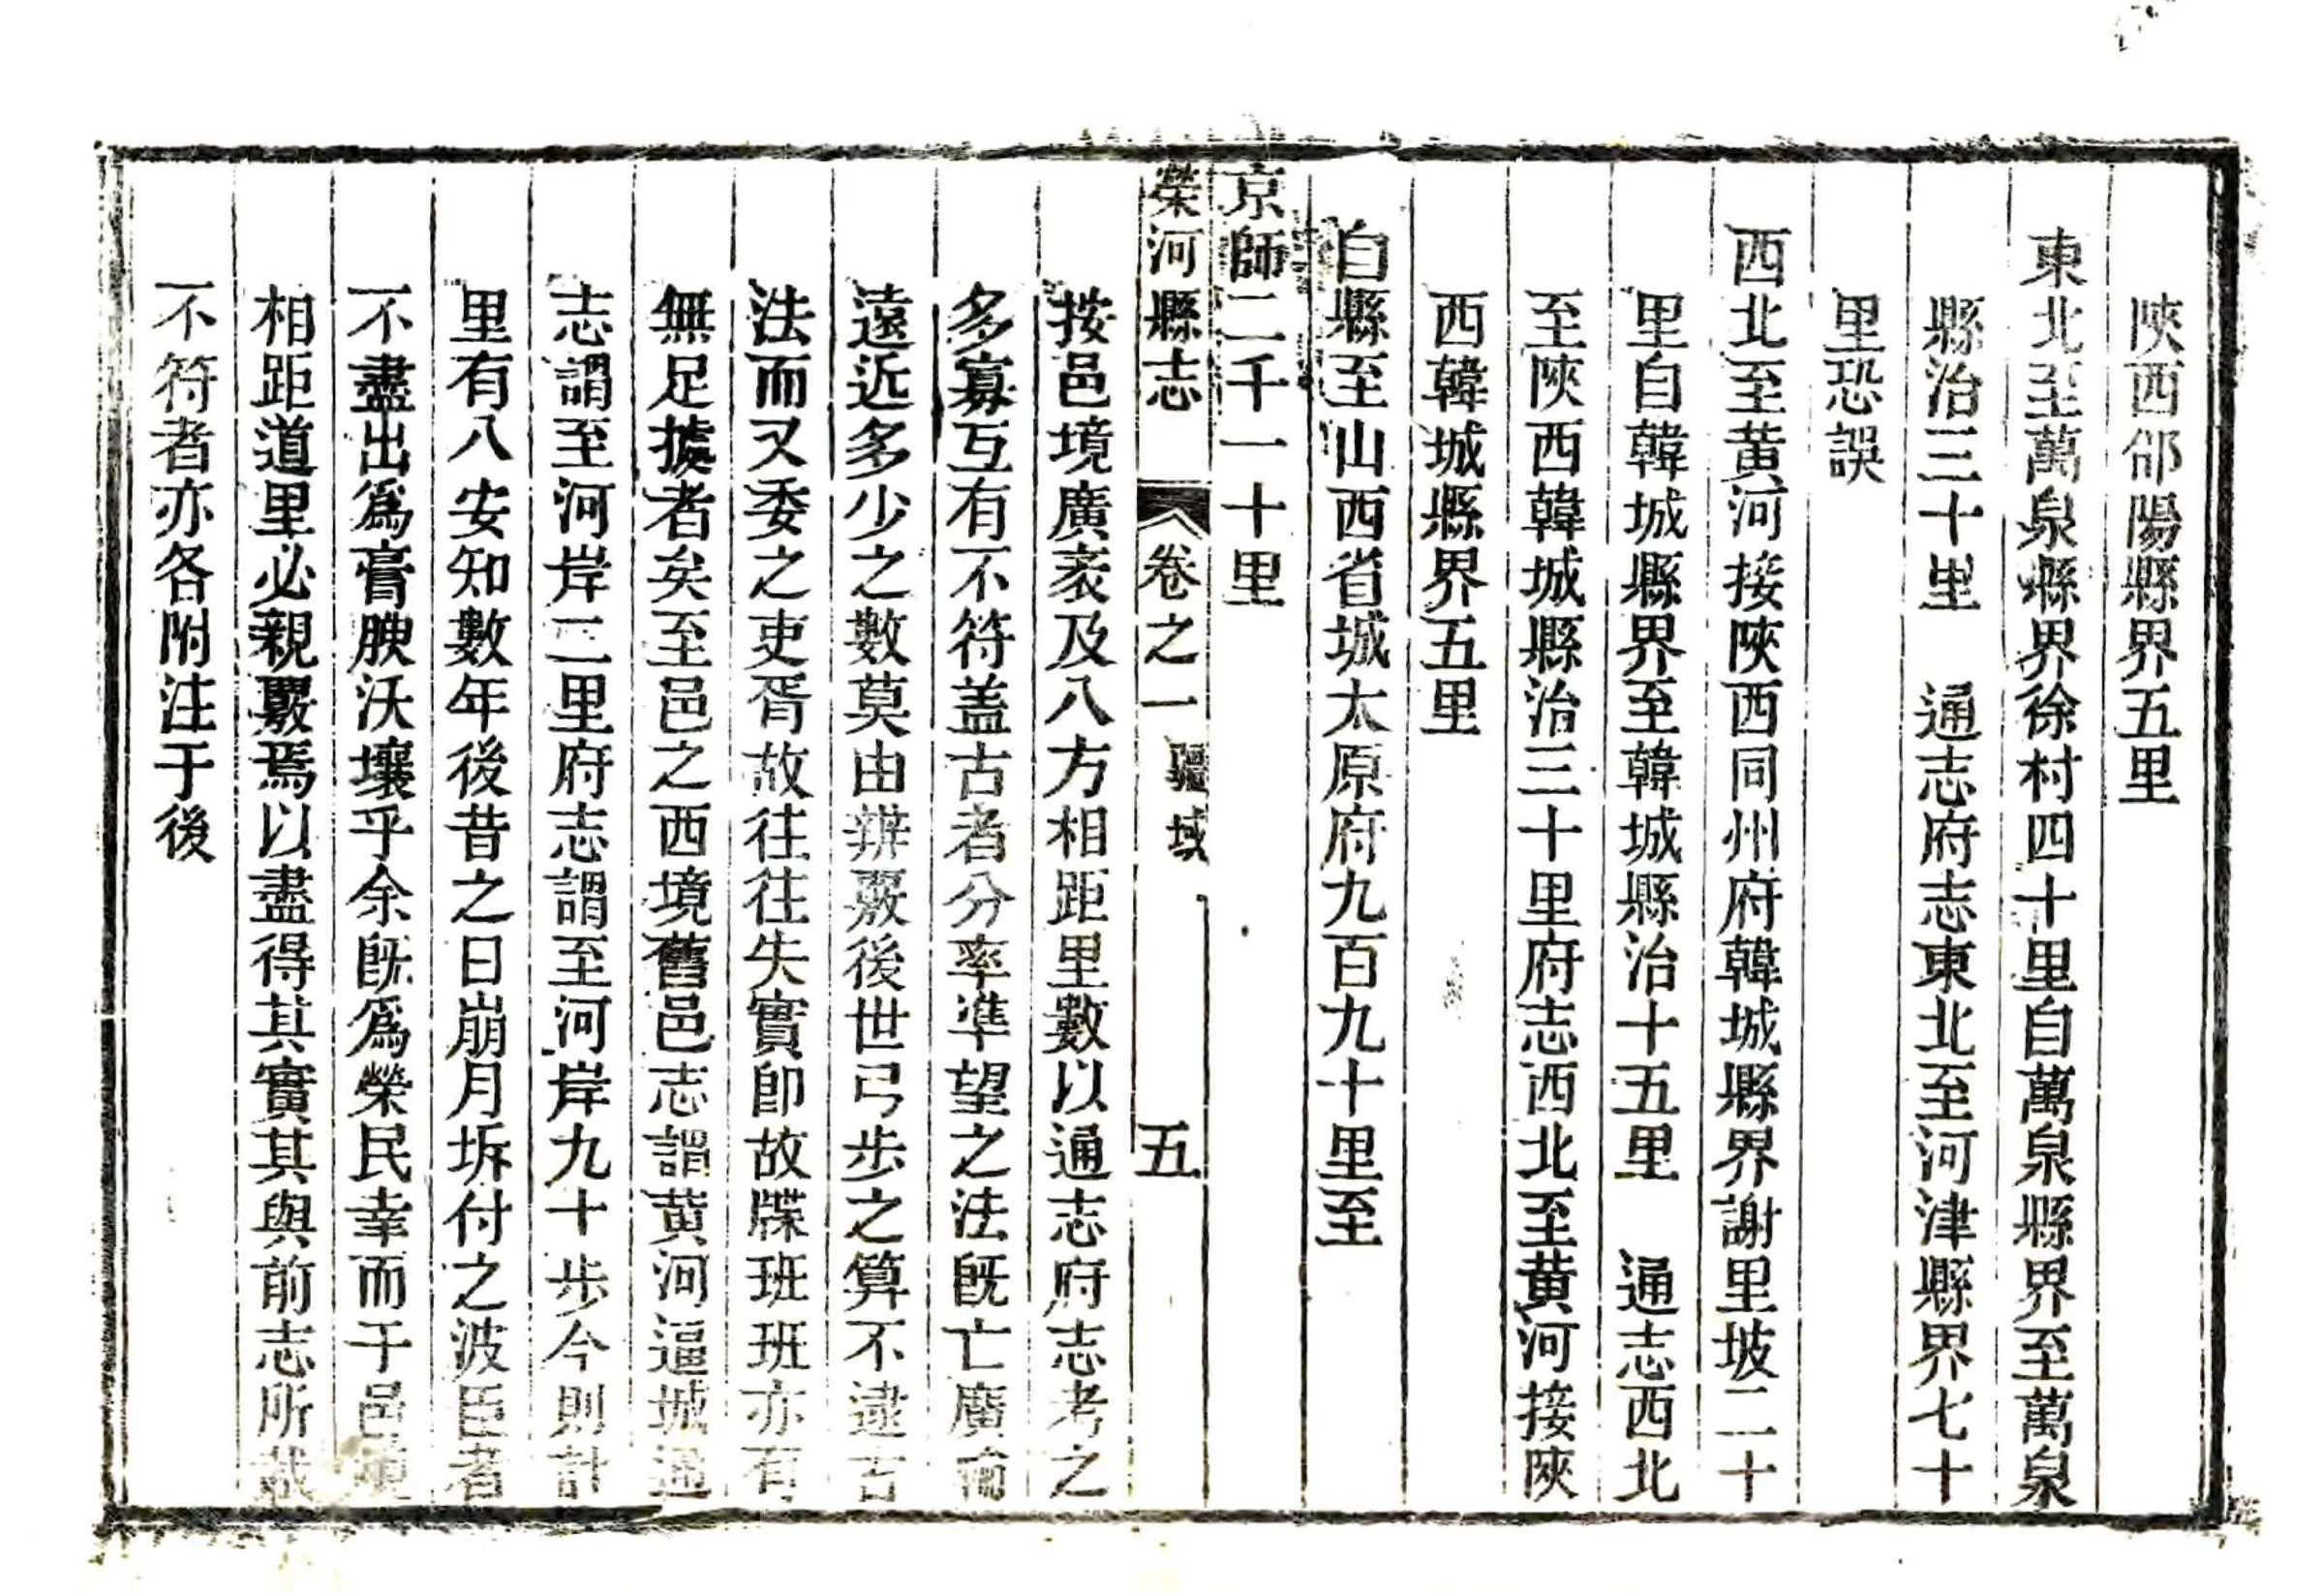 陝西郃陽縣界五里
東北至萬泉縣界徐村四十里自萬泉縣界至萬泉
縣治三十里　通志府志東北至河津縣界七十
里恐誤
西北至黄河接陝西同州府韓城縣界謝里坡二十
里自韓城縣界至韓城縣治十五里　通志西北
至陝西韓城縣治三十里府志西北至黄河接陝
西韓城縣界五里
自縣至山西省城太原府九百九十里至
京師二千一十里
榮河縣志　卷之一　疆域　五
按邑境廣袤及八方相距里數以通志府志考之
多寡互有不符盖古者分率準望之法旣亡廣輪
遠近多少之數莫由辨覈後世弓步之算不逮古
法而又委之吏胥故往往失實卽故牒班班亦有
無足據者矣至邑之西境舊邑志謂黄河逼城通
志謂至河岸二里府志謂至河岸九十步今則計
里有八安知數年後昔之日崩月坼付之波臣者
不盡出爲膏腴沃壤乎余旣爲榮民幸而于邑境
相距道里必親覈焉以盡得其實其與前志所載
不符者亦各附注于後